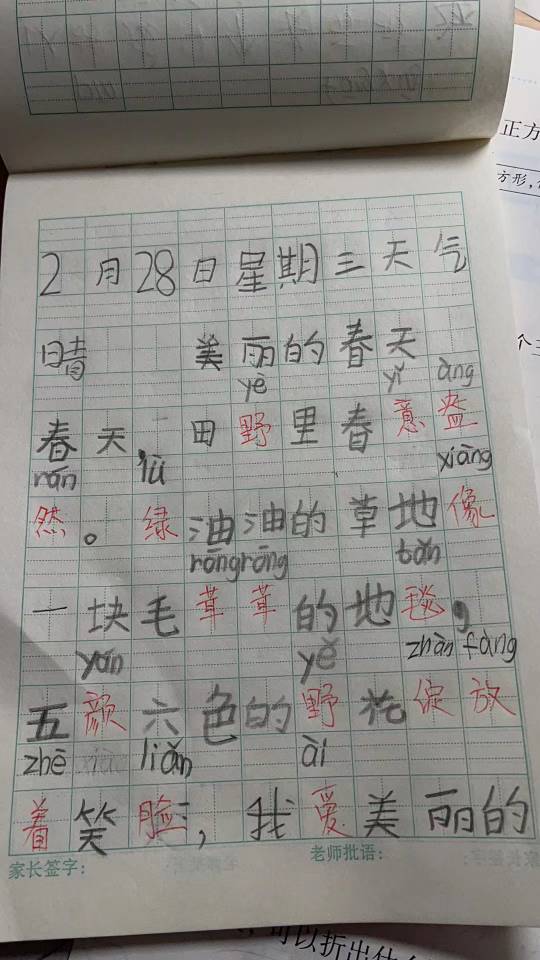 2月28日星期三天气
晴 美丽的春天
yě yì àng
春天,田野里春意盎
rán lǜ xiàng
然。绿油油的草地像
róngróng tǎn
一块毛茸茸的地毯,
yán yě zhàn fàng
五颜六色的野花绽放
zhē liǎn ài
着笑脸,我爱美丽的
家长签字: 老师批语:
正方
方形,
个三
可以折出什么